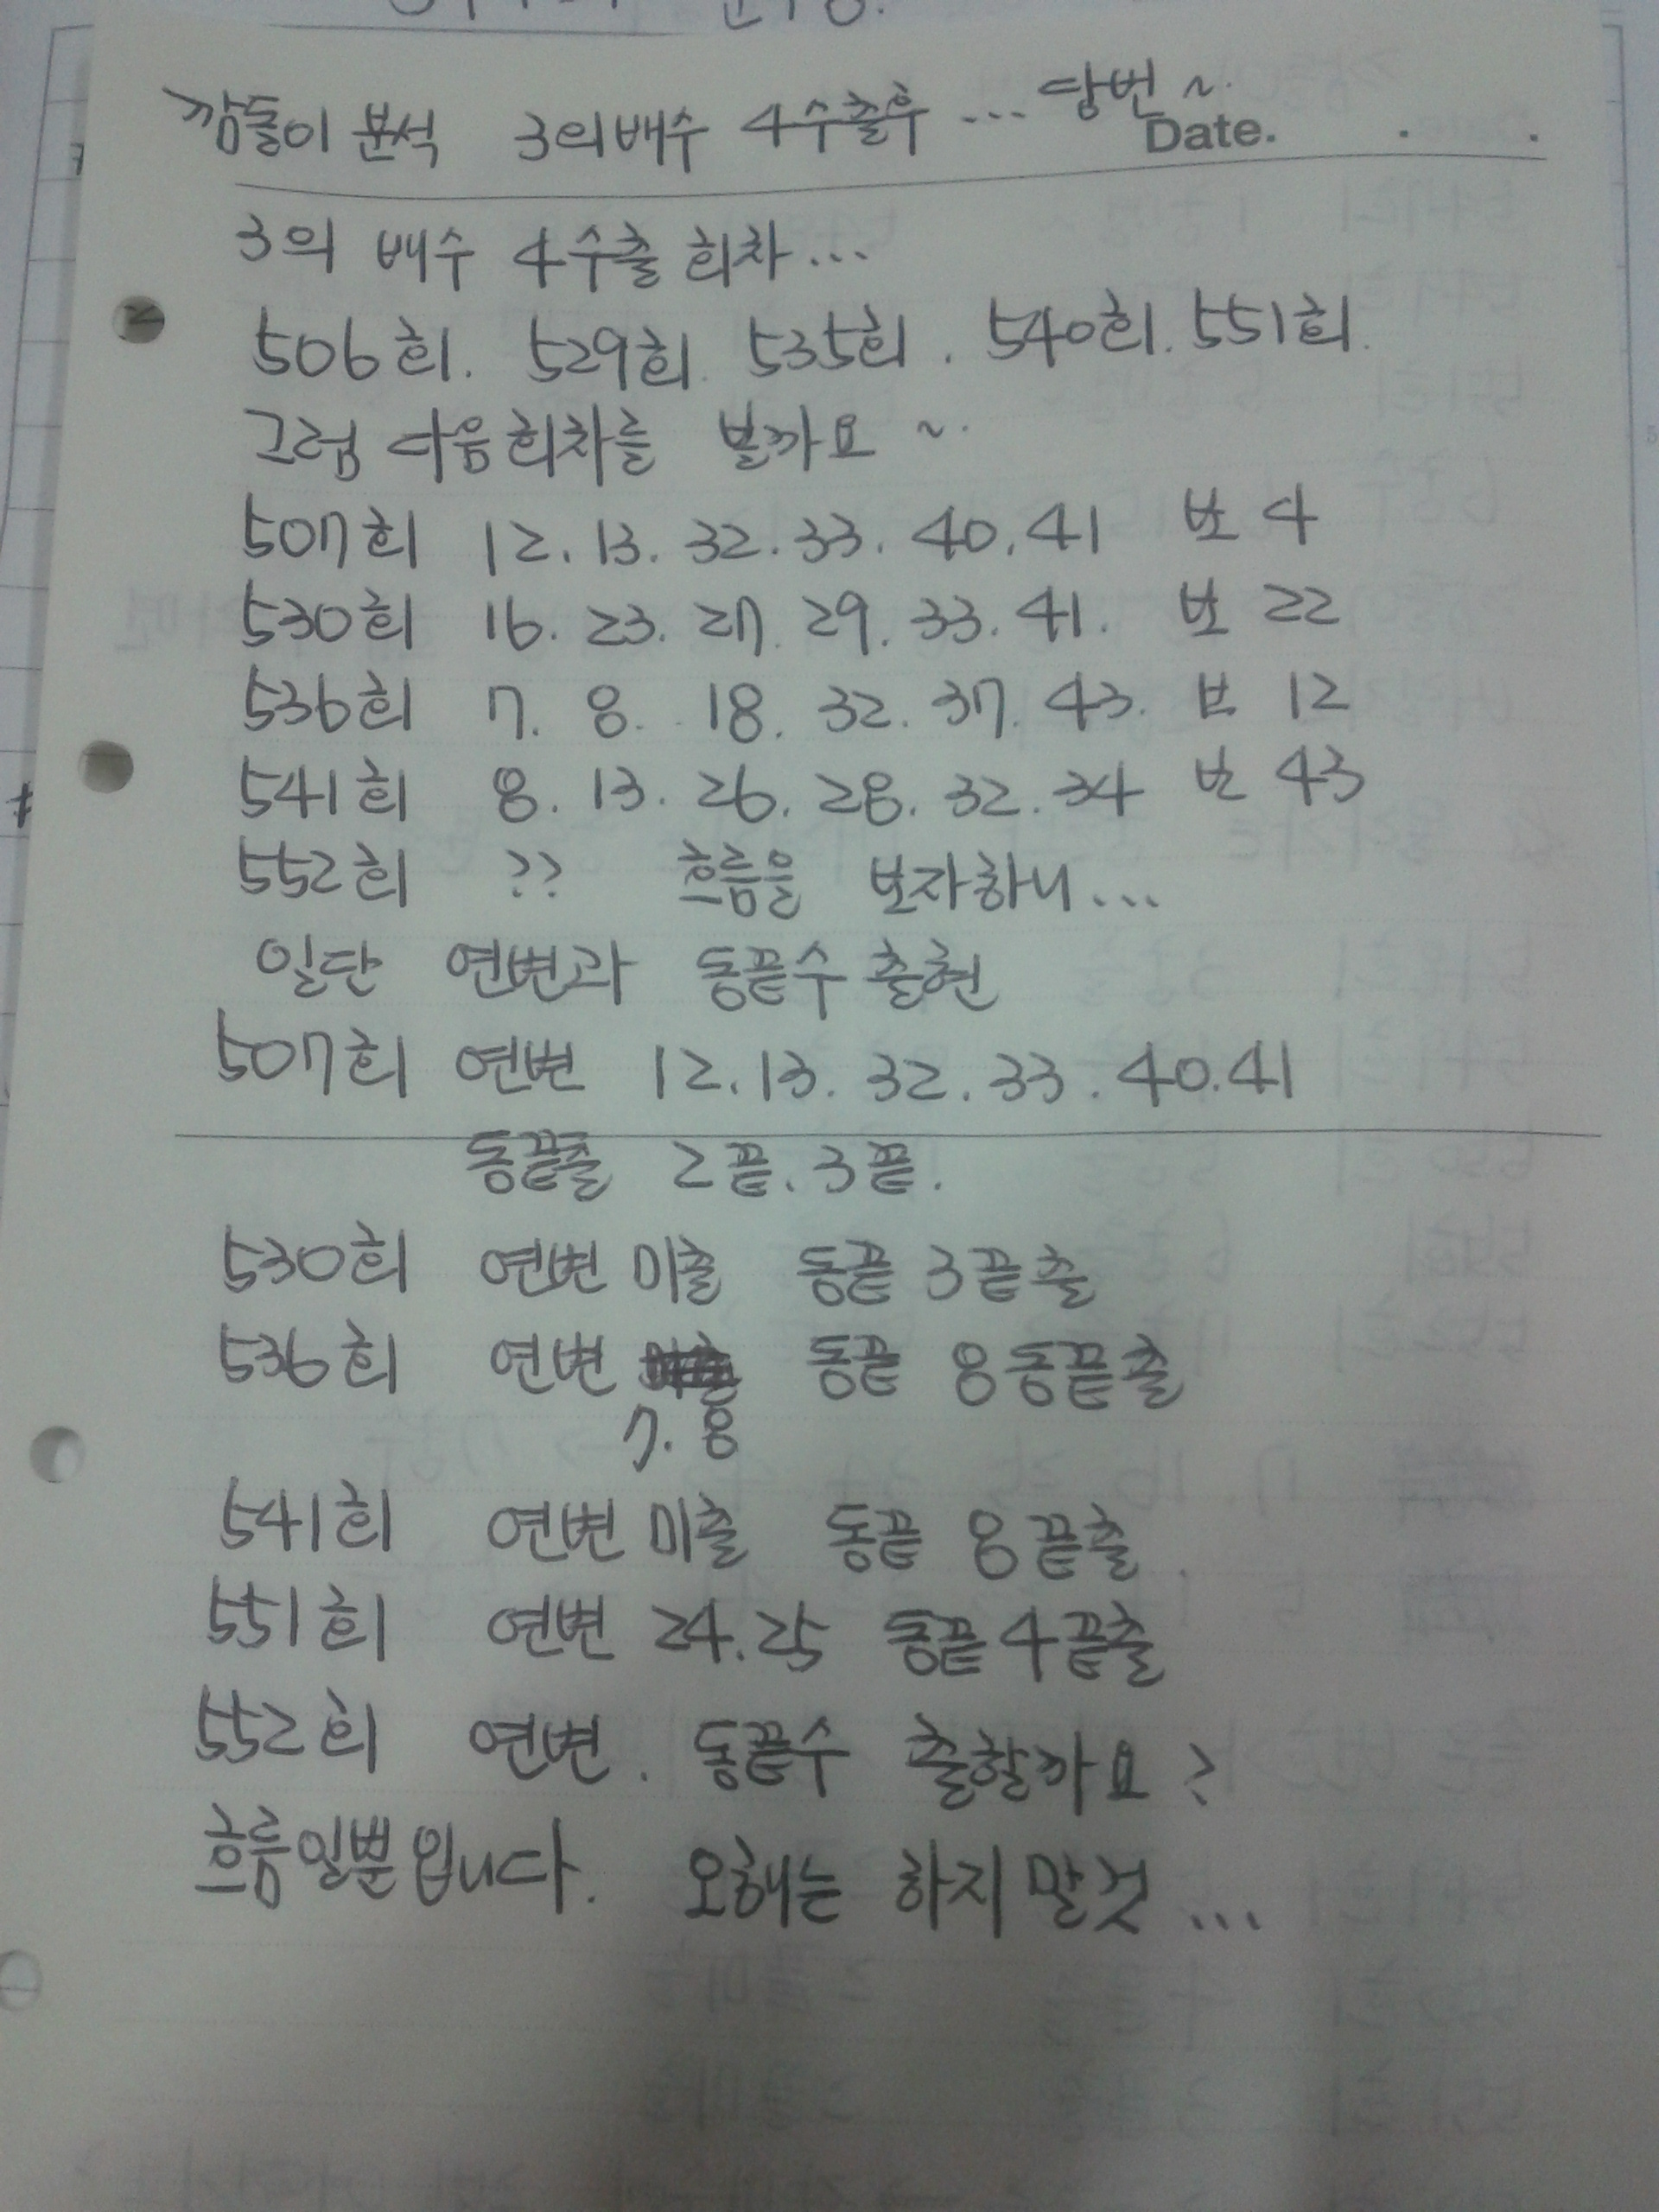 깜돌이 분석 3의배수 4수출후... 당번~
Date. . .
3의 배수 4수출 회차...
506회. 529회. 535회. 540회. 551회.
그럼 다음회차를 볼까요~.
507회 12.13.32.33.40.41 보 4
530회 16.23.27.29.33.41. 보 22
536회 7.8.18.32.37.43. 보 12
541회 8.13.26.28.32.34 보 43
552회 ?? 흐름을 보자하니...
일단 연번과 동끝수 출현
507회 연번 12.13.32.33.40.41
동끝출 2끝.3끝.
530회 연번 미출 동끝 3끝출
536회 연번 동끝 8동끝출
7.8
541회 연번 미출 동끝 8끝출.
551회 연번 24.25 동끝 4끝출
552회 연번. 동끝수 출할까요?
흐름일뿐입니다. 오해는 하지말것...